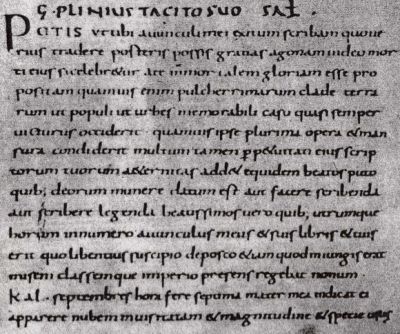 C·PLINIUS TACITO SUO SAL·
PETIS UT tibi avunculi mei exitum scribam quo ve
rius tradere posteris possis gratias ago nam video mor
ti eius si celebretur a te inmortalem gloriam esse pro
positam quamvis enim pulcherrimarum clade terra
rum ut populi ut urbes memorabili casu quasi semper
victurus occiderit· quamvis ipse plurima opera et man
sura condiderit multum tamen perpetuitati eius scrip
torum tuorum aeternitas addet equidem beatos puto
quib; deorum munere datum est aut facere scribenda
aut scribere legenda beatissimos vero quib; utrumque
horum in numero avunculus meus et suis libris et tuis
erit quo libentius suscipio deposco etiam quod iniungis erat
miseni classemque imperio praesens regebat nonum·
KAL· septembres hora fere septima mater mea indicat ei
apparere nubem inusitata et magnitudine et specie usus